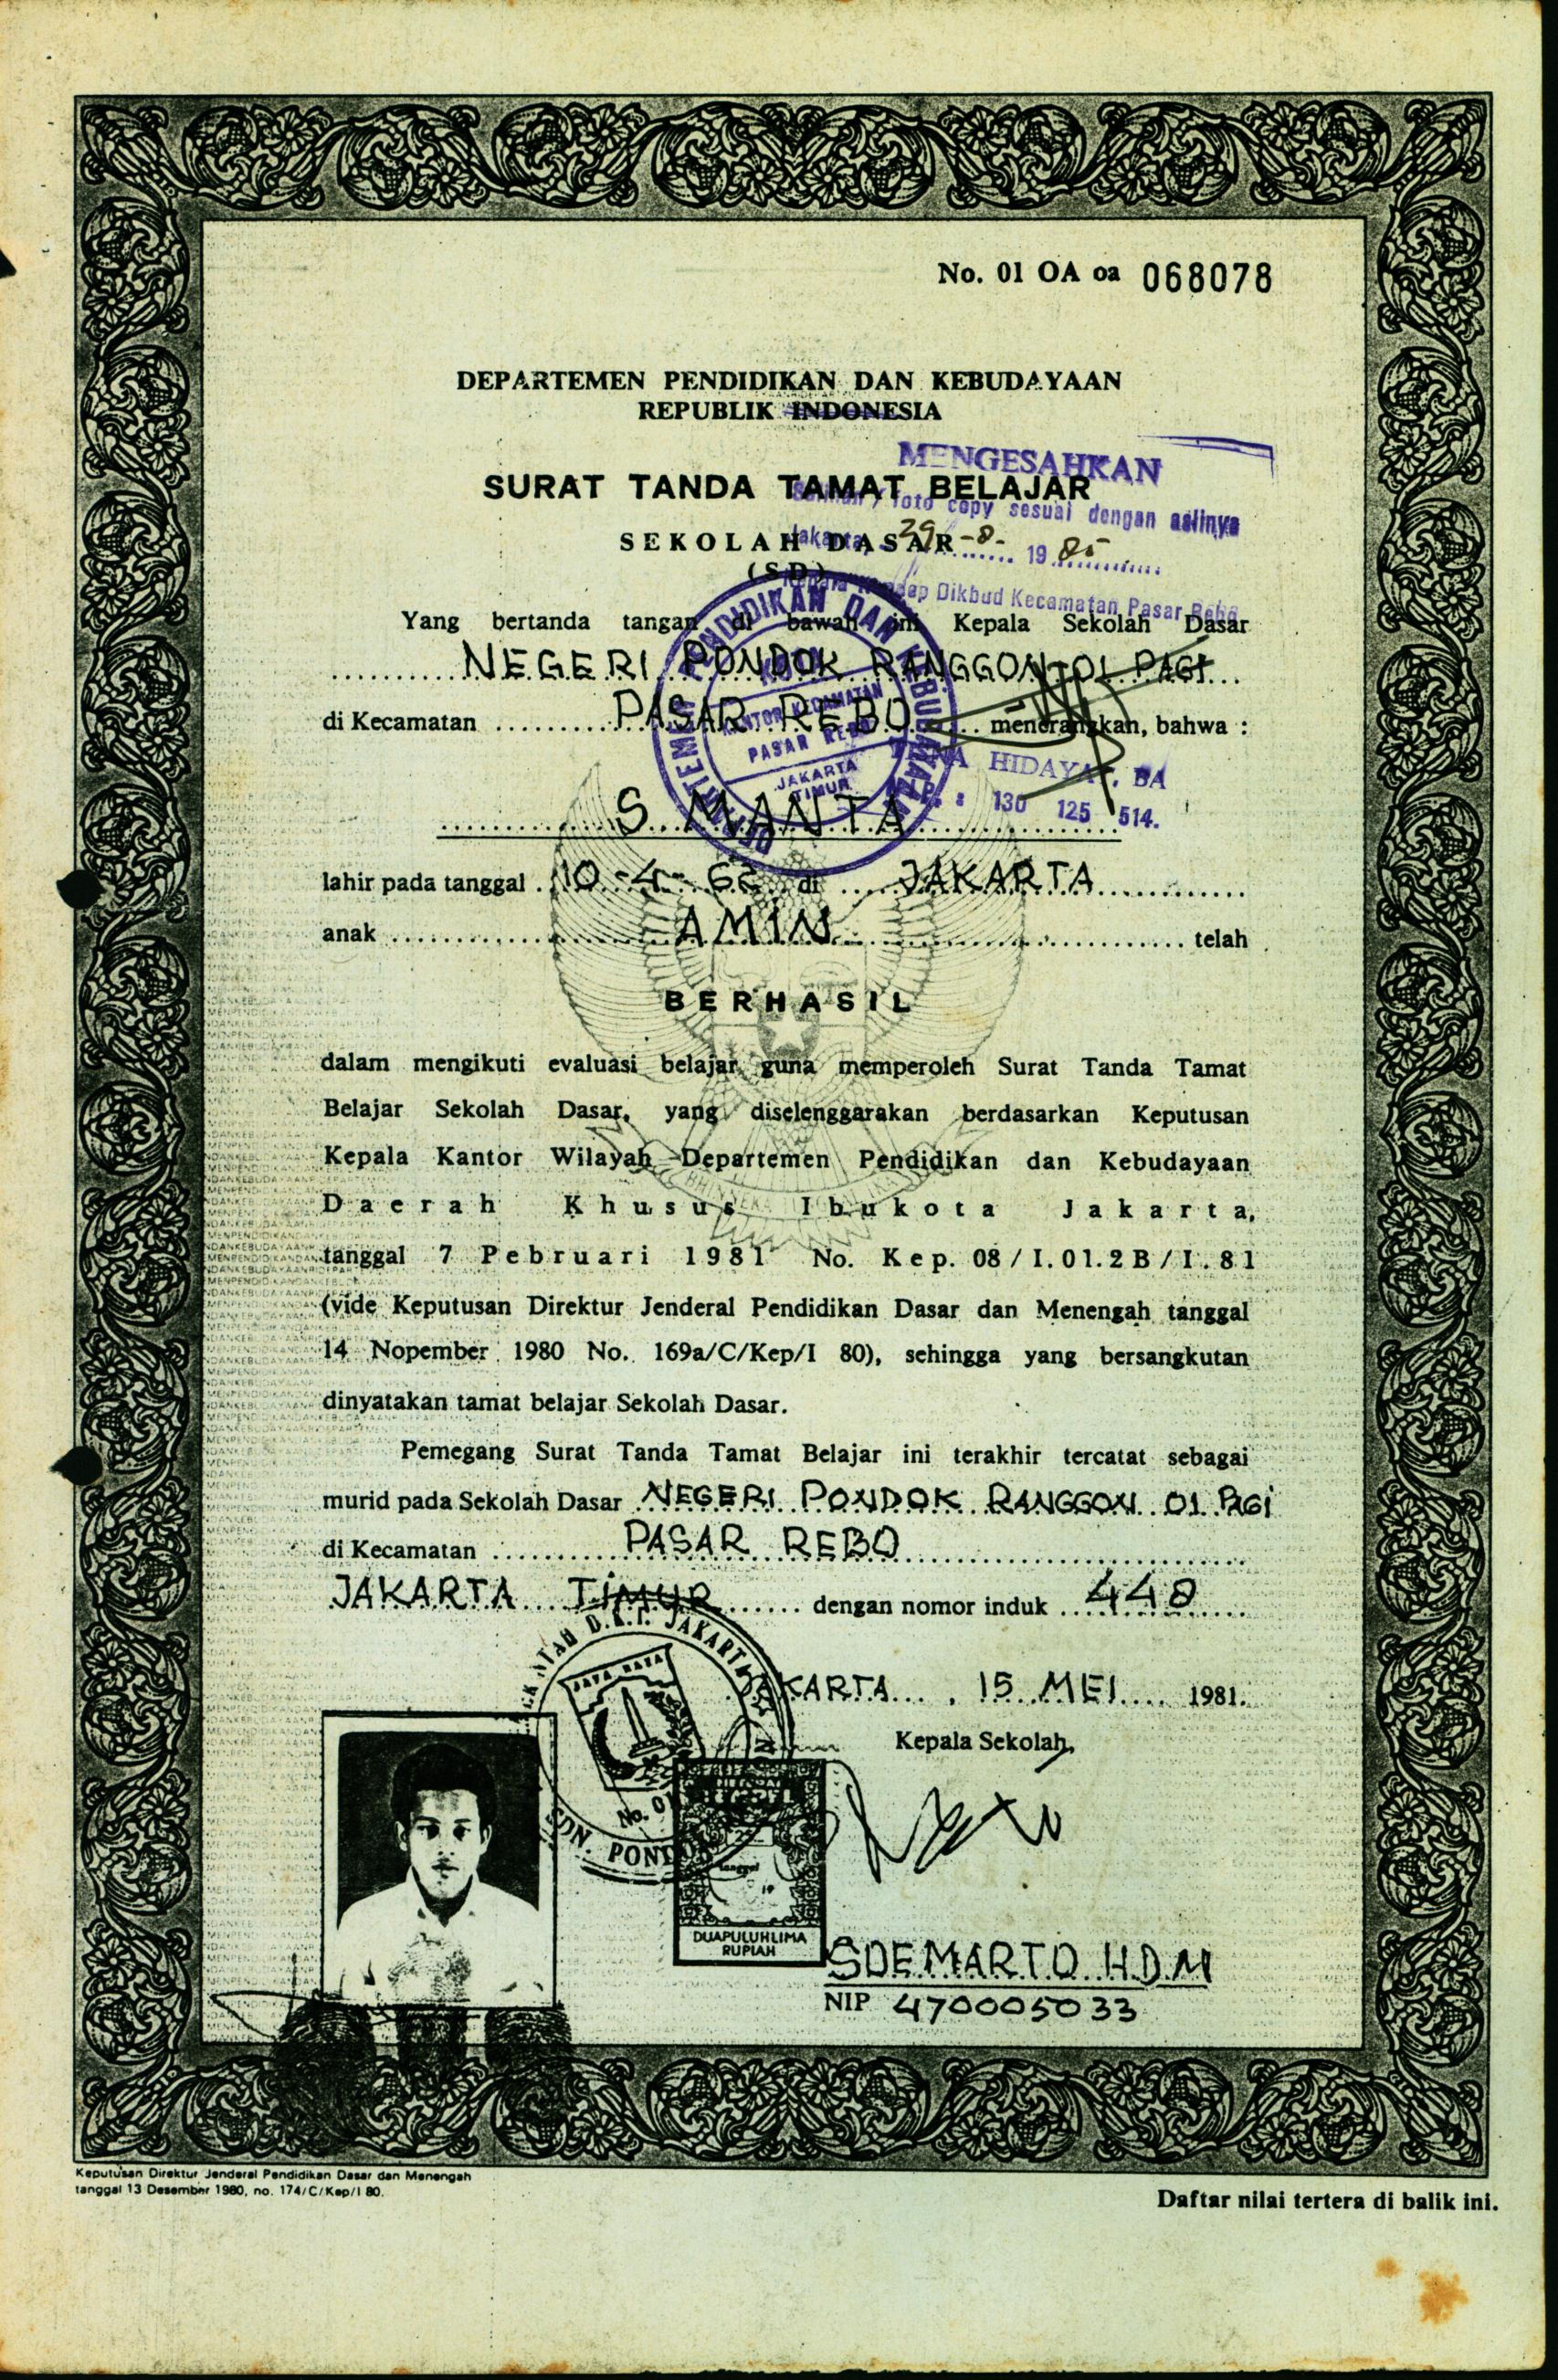 No. 01 OA oa 068078
DEPARTEMEN PENDIDIKAN DAN KEBUDAYAAN
REPUBLIK INDONESIA
MENGESAHKAN
SURAT TANDA TAMAT BELAJAR
Salinan / foto copy sesuai dengan aslinya
SEKOLAH DASAR
Jakarta, 29-8-1985
(SD)
Dikbud Kecamatan Pasar Rebo
Yang bertanda tangan di bawah ini Kepala Sekolah Dasar
NEGERI PONDOK RANGGON 01 PAGI
di Kecamatan PASAR REBO menerangkan, bahwa :
DEPARTEMEN PENDIDIKAN DAN KEBUDAYAAN
KANTOR KECAMATAN
PASAR REBO
JAKARTA
TIMUR
HIDAYAT, BA
NIP. : 130 125 514.
S. MANTA
lahir pada tanggal 10-4-62 di JAKARTA
anak AMIN telah
BERHASIL
dalam mengikuti evaluasi belajar guna memperoleh Surat Tanda Tamat
Belajar Sekolah Dasar, yang diselenggarakan berdasarkan Keputusan
Kepala Kantor Wilayah Departemen Pendidikan dan Kebudayaan
Daerah Khusus Ibukota Jakarta,
tanggal 7 Pebruari 1981 No. Kep. 08/I.01.2B/I.81
(vide Keputusan Direktur Jenderal Pendidikan Dasar dan Menengah tanggal
14 Nopember 1980 No. 169a/C/Kep/I 80), sehingga yang bersangkutan
dinyatakan tamat belajar Sekolah Dasar.
Pemegang Surat Tanda Tamat Belajar ini terakhir tercatat sebagai
murid pada Sekolah Dasar NEGERI PONDOK RANGGON 01 PAGI
di Kecamatan PASAR REBO
JAKARTA TIMUR dengan nomor induk 448
D.K.I. JAKARTA
JAYA RAYA
No. 01
SDN. PONDOK
JAKARTA, 15 MEI 1981.
Kepala Sekolah,
tanggal
19
DUAPULUHLIMA
RUPIAH
SOEMARTO H.D.M
NIP 470005033
Keputusan Direktur Jenderal Pendidikan Dasar dan Menengah
tanggal 13 Desember 1980, no. 174/C/Kep/I 80.
Daftar nilai tertera di balik ini.